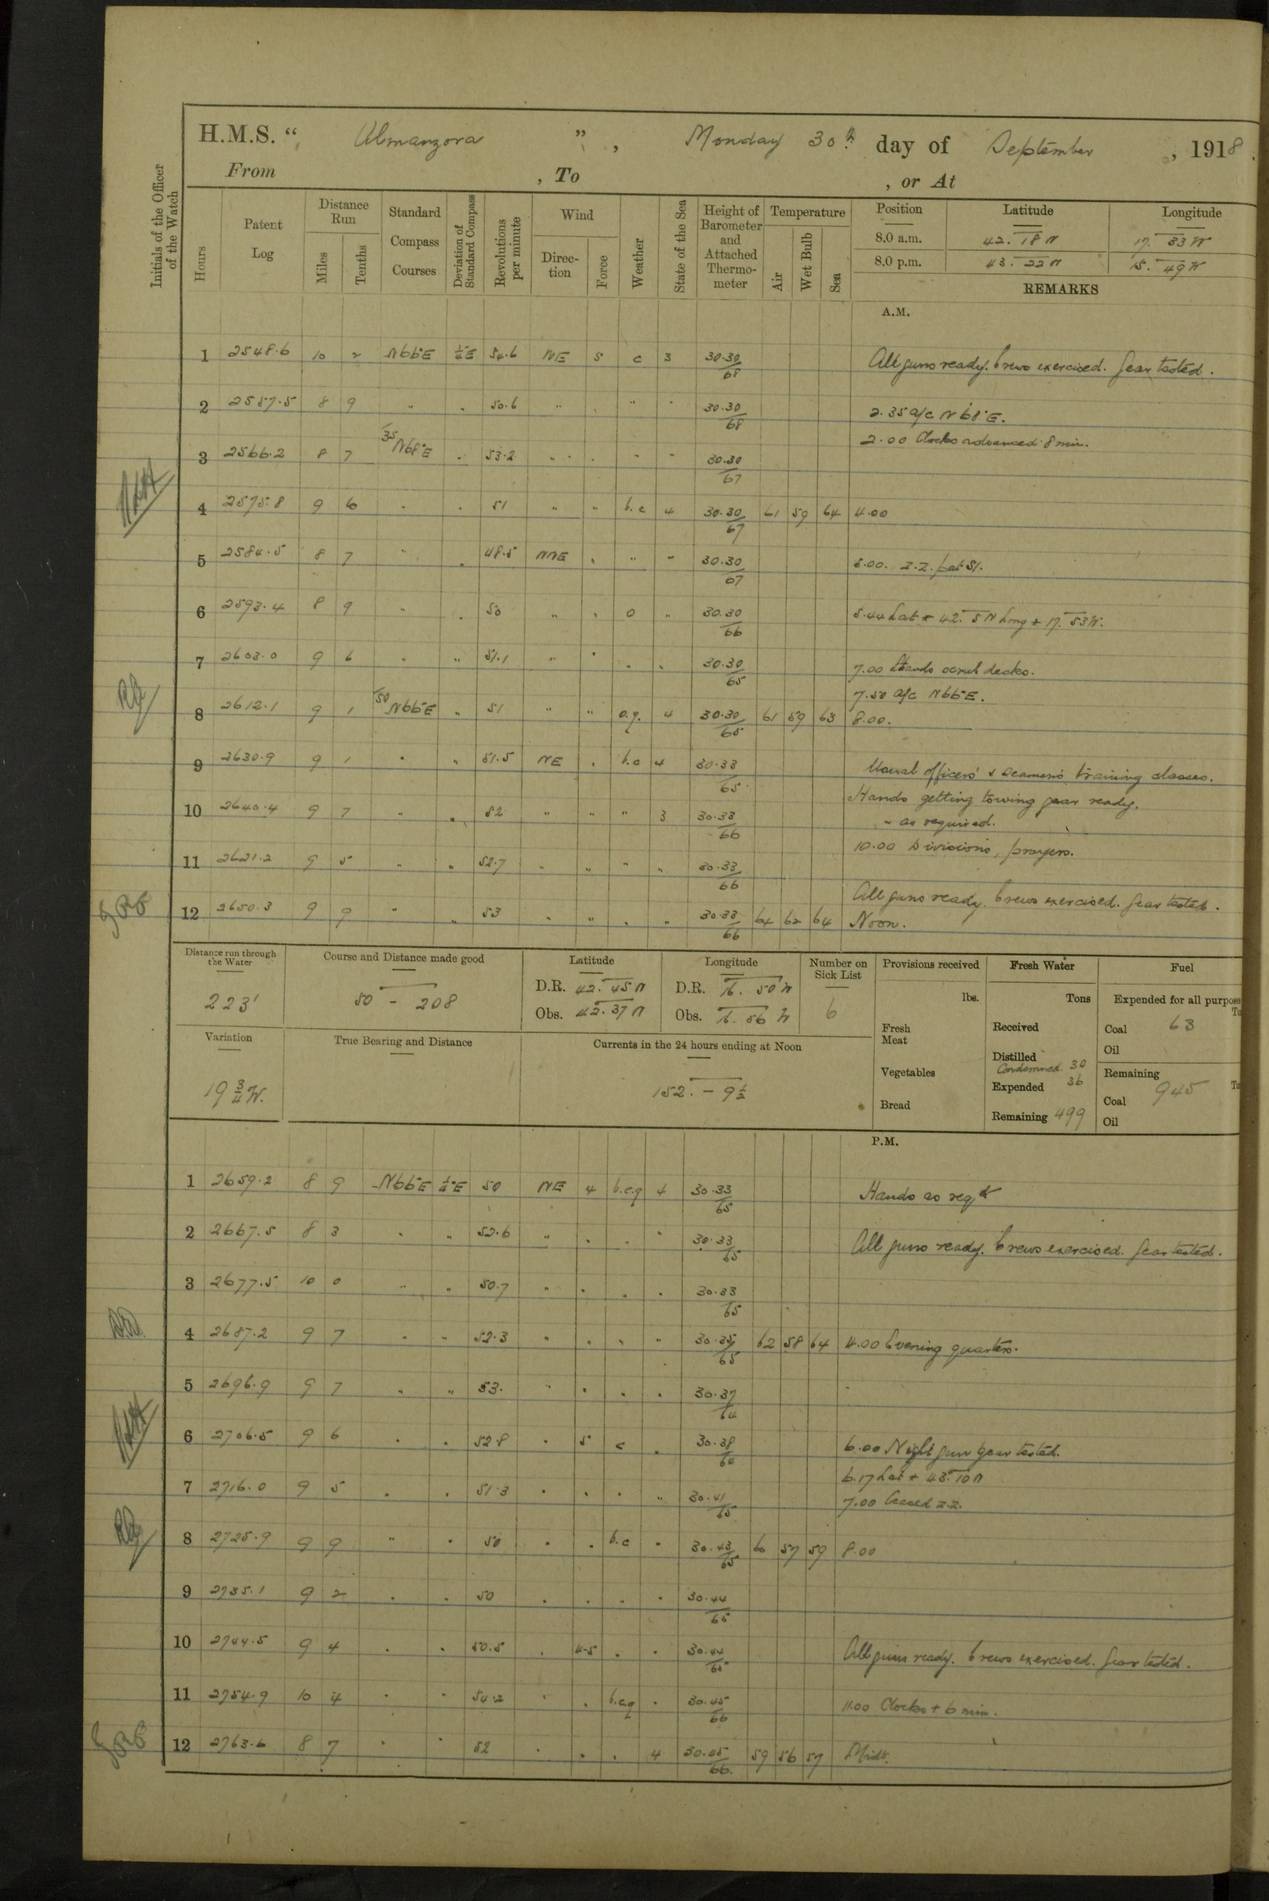 H.M.S. " Almanzora ", Monday 30th day of September, 1918.
From , To , or At
Initials of the Officer of the Watch
Hours
Patent Log
Distance Run
Miles
Tenths
Standard Compass Courses
Deviation of Standard Compass
Revolutions per minute
Wind
Direction
Force
Weather
State of the Sea
Height of Barometer and Attached Thermometer
Temperature
Air
Wet Bulb
Sea
Position Latitude Longitude
8.0 a.m. 42. 18 N 17. 33 W
8.0 p.m. 43. 22 N 15. 49 W
REMARKS
A.M.
1 2548.6 10 2 N66°E ½E 54.6 NE 5 c 3 30.30/68 All guns ready. Crews exercised. Gear tested.
2 2557.5 8 9 " " 50.6 " . " " 30.30/68 2.35 a/c N68°E.
2.00 Clocks advanced 8 min.
3 2566.2 8 7 /35 N68°E . 53.2 " . " " 30.30/67
4 2575.8 9 6 " . 51 " " b.c 4 30.30/67 61 59 64 4.00
5 2584.5 8 7 " . 48.5 NNE . " " 30.30/67 5.00. Z.Z.
6 2593.4 8 9 " . 50 " . o " 30.30/66 5.44 Lat * 42. 5 N Long * 17. 53 W.
7 2603.0 9 6 " " 51.1 " " . . 30.30/65 7.00 Hands scrub decks.
7.50 a/c N66°E.
8 2612.1 9 1 /50 N66°E " 51 " " o.q. 4 30.30/65 61 59 63 8.00.
9 2630.9 9 1 " " 51.5 NE . b.c 4 30.33/65 Usual officers' & seamen's training classes.
Hands getting towing gear ready.
10 2640.4 9 7 " " 52 " " " 3 30.33/66 " as required.
10.00 Divisions, prayers.
11 2621.2 9 5 " " 52.7 . " " " 30.33/66
All guns ready. Crews exercised. Gear tested.
12 2650.3 9 9 " " 53 . " . " 30.33/66 64 62 64 Noon.
Distance run through the Water
223'
Course and Distance made good
50 - 208
Latitude
D.R. 42. 45 N
Obs. 42. 37 N
Longitude
D.R. 16. 50 W
Obs. 16. 56 W
Number on Sick List
6
Provisions received
lbs.
Fresh Meat
Vegetables
Bread
Fresh Water
Tons
Received
Distilled
Condemned 30
Expended 36
Remaining 499
Fuel
Expended for all purpose
Coal 63
Oil
Remaining
Coal 945
Oil
Variation
19 ¾ W.
True Bearing and Distance
Currents in the 24 hours ending at Noon
152. - 9½
P.M.
1 2659.2 8 9 N66°E ½°E 50 NE 4 b.c.q 4 30.33/65 Hands as reqd
2 2667.5 8 3 " " 52.6 " . . " 30.33/65 All guns ready. Crews exercised. Gear tested.
3 2677.5 10 0 " " 50.7 . . . . 30.33/65
4 2687.2 9 7 " " 52.3 " . . " 30.35/65 62 58 64 4.00 Evening quarters.
5 2696.9 9 7 " " 53. " . . . 30.37/64
6 2706.5 9 6 . . 52.8 . 5 c . 30.38/60 6.00 Night gun gear tested.
6.17 Lat * 43. 10 N
7 2716.0 9 5 . . 51.3 . . . " 30.41/65 7.00 Ceased Z.Z.
8 2725.9 9 9 " . 50 . . b.c " 30.43/65 60 57 59 8.00
9 2735.1 9 2 . . 50 . . . . 30.44/65
10 2744.5 9 4 . . 50.5 . 4-5 . . 30.44/65 All guns ready. Crews exercised. Gear tested.
11 2754.9 10 4 " . 54.2 . . b.c.q . 30.45/66 11.00 Clocks + 6 min.
12 2763.6 8 7 " " 52 . . . 4 30.45/66 59 56 57 Midt.